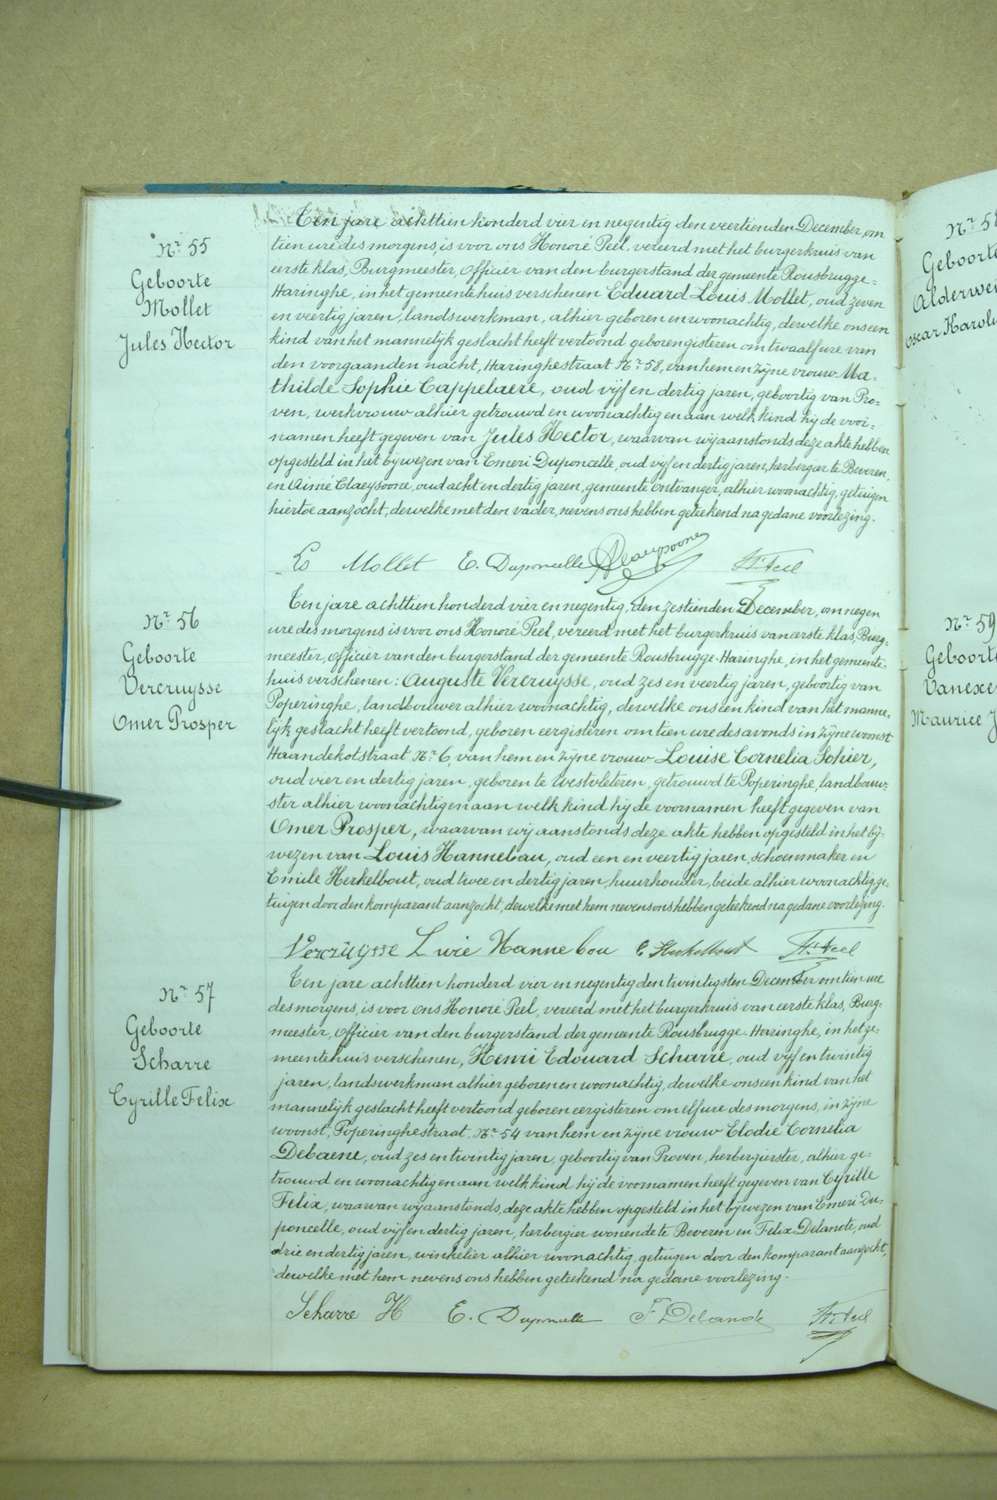 Nr 55
Geboorte
Mollet
Jules Hector
Ten jare achttien honderd vier en negentig den veertienden December, om
tien ure des morgens is voor ons Honoré Peel, vereerd met het burgerkruis van
eerste klas, Burgmeester, officier van den burgerstand der gemeente Rousbrugge-
Haringhe, in het gemeentehuis verschenen Eduard Louis Mollet, oud zeven
en veertig jaren, landswerkman, alhier geboren en woonachtig, dewelke ons een
kind van het mannelijk geslacht heeft vertoond geboren gisteren om twaalf ure van
den voorgaanden nacht, Haringhestraat Nr 58, van hem en zijne vrouw Ma-
thilde Sophie Cappelaere, oud vijf en dertig jaren, geboortig van Pro-
ven, werkvrouw alhier getrouwd en woonachtig en aan welk kind hij de voor-
namen heeft gegeven van Jules Hector, waarvan wij aanstonds deze akte hebben
opgesteld in het bijwezen van Emeri Duponcelle, oud vijf en dertig jaren, herbergier te Beveren,
en Aimé Claeysoone, oud acht en dertig jaren, gemeente ontvanger, alhier woonachtig, getuigen
hiertoe aanzocht, dewelke met den vader, nevens ons hebben geteekend na gedane voorlezing.
Mollet E. Duponcelle A Claeysoone H. Peel
Nr 56
Geboorte
Vercruysse
Omer Prosper
Ten jare achttien honderd vier en negentig, den zestienden December, om negen
ure des morgens is voor ons Honoré Peel, vereerd met het burgerkruis van eerste klas, Burg-
meester, officier van den burgerstand der gemeente Rousbrugge-Haringhe, in het gemeente-
huis verschenen: Auguste Vercruysse, oud zes en veertig jaren, geboortig van
Poperinghe, landbouwer alhier woonachtig, dewelke ons een kind van het manne-
lijk geslacht heeft vertoond, geboren eergisteren om tien ure des avonds in zijne woonst
Haandekotstraat Nr 6, van hem en zijne vrouw Louise Cornelia Sohier,
oud vier en dertig jaren, geboren te Westvleteren, getrouwd te Poperinghe, landbouw-
ster alhier woonachtig en aan welk kind hij de voornamen heeft gegeven van
Omer Prosper, waarvan wij aanstonds deze akte hebben opgesteld in het bij-
wezen van Louis Hannebau, oud een en veertig jaren, schoenmaker en
Emile Herkelbout, oud twee en dertig jaren, huurhouder, beide alhier woonachtig ge-
tuigen door den komparant aanzocht, dewelke met hem nevens ons hebben geteekend na gedane voorlezing.
Vercruysse L wie Hannebou E Herkelbout H. Peel
Nr 57
Geboorte
Scharre
Cyrille Felix
Ten jare achttien honderd vier en negentig den twintigsten December om tien ure
des morgens, is voor ons Honoré Peel, vereerd met het burgerkruis van eerste klas, Burg-
meester, officier van den burgerstand der gemeente Rousbrugge-Haringhe, in het ge-
meentehuis verschenen, Henri Edouard Scharre, oud vijf en twintig
jaren, landswerkman alhier geboren en woonachtig, dewelke ons een kind van het
mannelijk geslacht heeft vertoond geboren eergisteren om elf ure des morgens, in zijne
woonst, Poperinghestraat, Nr 54 van hem en zijne vrouw Elodie Cornelia
Debaene, oud zes en twintig jaren, geboortig van Proven, herbergierster, alhier ge-
trouwd en woonachtig en aan welk kind hij de voornamen heeft gegeven van Cyrille
Felix, waarvan wij aanstonds, deze akte hebben opgesteld in het bijwezen van Emeri Du-
poncelle, oud vijf en dertig jaren, herbergier wonende te Beveren en Felix Delanote, oud
drie en dertig jaren, winkelier alhier woonachtig, getuigen door den komparant aanzocht,
dewelke met hem nevens ons hebben geteekend na gedane voorlezing.
Scharre H E. Duponcelle F Delanote H. Peel
Geboorte
Nr 59
Geboorte
Maurice